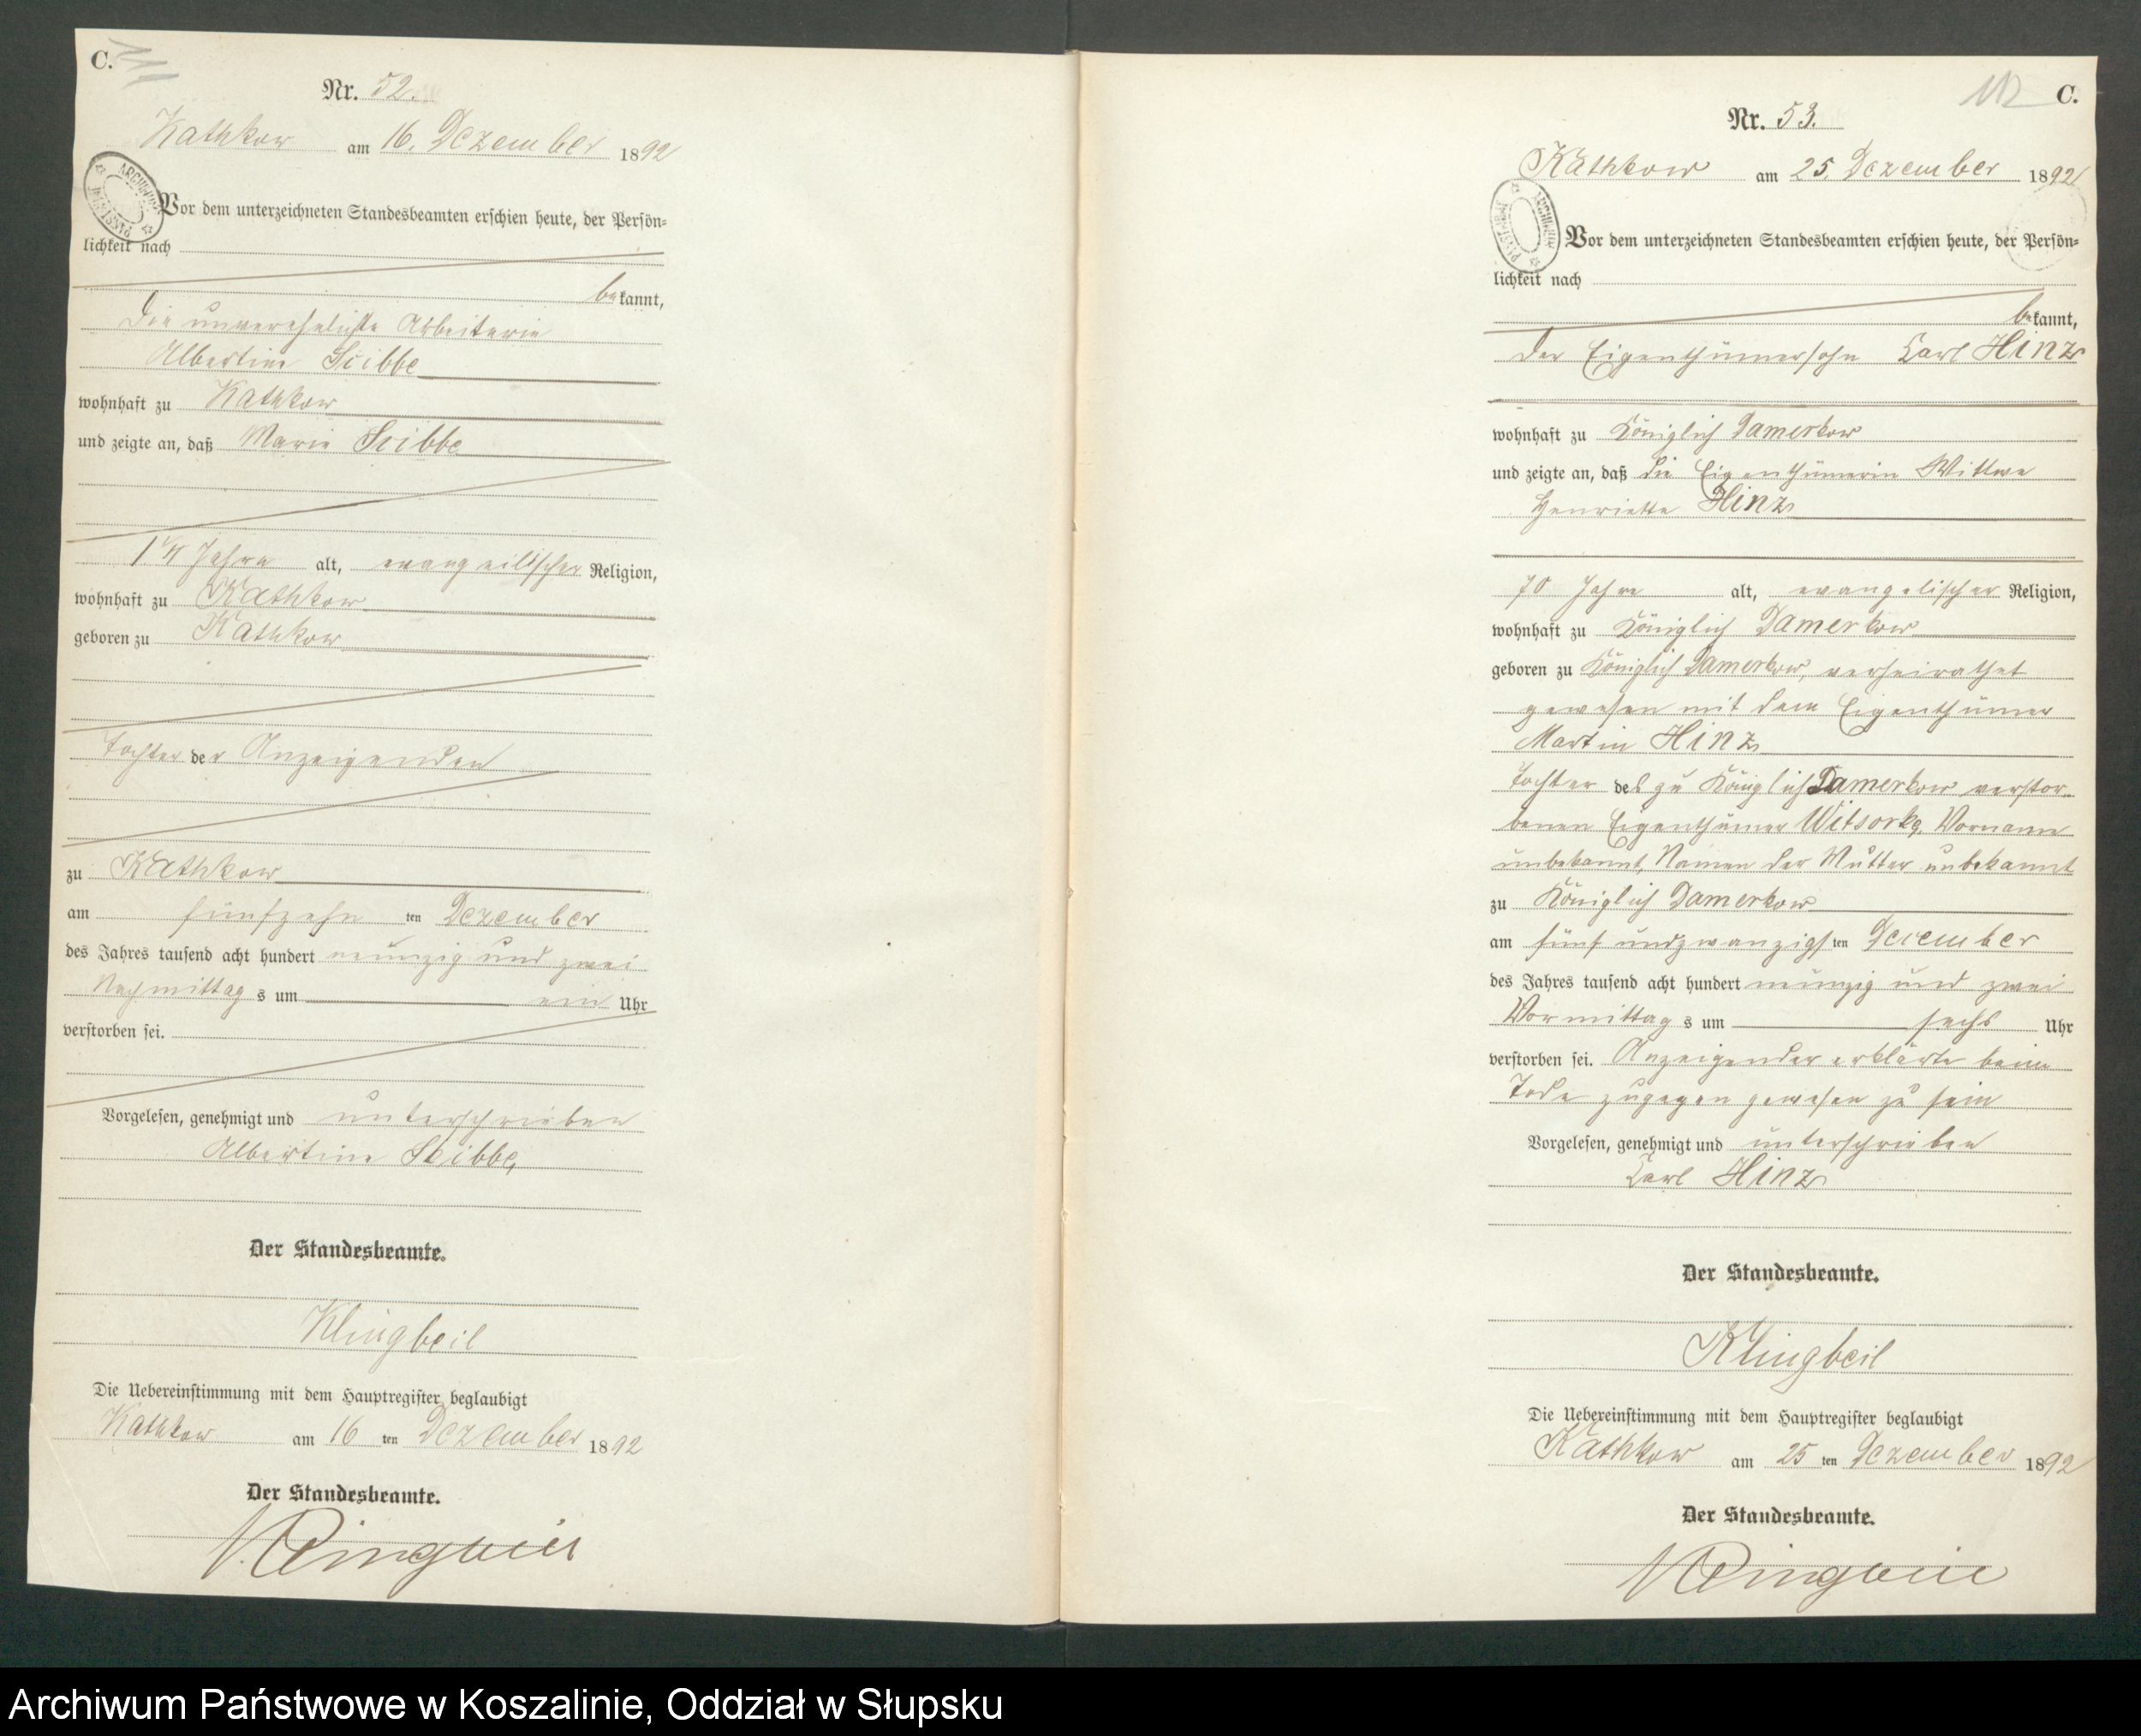 C.
Nr. 52.
Kathkow am 16. Dezember 1892
Vor dem unterzeichneten Standesbeamten erschien heute, der Persön-
lichkeit nach
bekannt,
die unverehelichte Arbeiterin
Albertine Scibbe
wohnhaft zu Kathkow
und zeigte an, daß Marie Scibbe
Jahre alt, evangelischer Religion,
wohnhaft zu Kathkow
geboren zu Kathkow
Tochter der Anzeigenden
zu Kathkow
am fünfzehn ten Dezember
des Jahres tausend acht hundert neunzig und zwei
Nachmittag s um ein Uhr
verstorben sei.
Vorgelesen, genehmigt und unterschrieben
Albertine Scibbe
Der Standesbeamte.
Klingbeil
Die Uebereinstimmung mit dem Hauptregister beglaubigt
Kathkow am 16 ten Dezember 1892
Der Standesbeamte.
Klingbeil
112 C.
Nr. 53.
Kathkow am 25. Dezember 1892
Vor dem unterzeichneten Standesbeamten erschien heute, der Persön-
lichkeit nach
bekannt,
der Eigenthümersohn Carl Hinz
wohnhaft zu Königlich Damerkow
und zeigte an, daß die Eigenthümerin Wittwe
Henriette Hinz
70 Jahre alt, evangelischer Religion,
wohnhaft zu Königlich Damerkow
geboren zu Königlich Damerkow, verheirathet
gewesen mit dem Eigenthümer
Martin Hinz
Tochter des zu Königlich Damerkow verstor-
benen Eigenthümer Witsorke, Vorname
unbekannt, Namen der Mutter unbekannt
zu Königlich Damerkow
am fünf undzwanzigs ten December
des Jahres tausend acht hundert neunzig und zwei
Vormittag s um sechs Uhr
verstorben sei. Anzeigender erklärte beim
Tode zugegen gewesen zu sein
Vorgelesen, genehmigt und unterschrieben
Carl Hinz
Der Standesbeamte.
Klingbeil
Die Uebereinstimmung mit dem Hauptregister beglaubigt
Kathkow am 25 ten Dezember 1892
Der Standesbeamte.
Klingbeil
Archiwum Państwowe w Koszalinie, Oddział w Słupsku